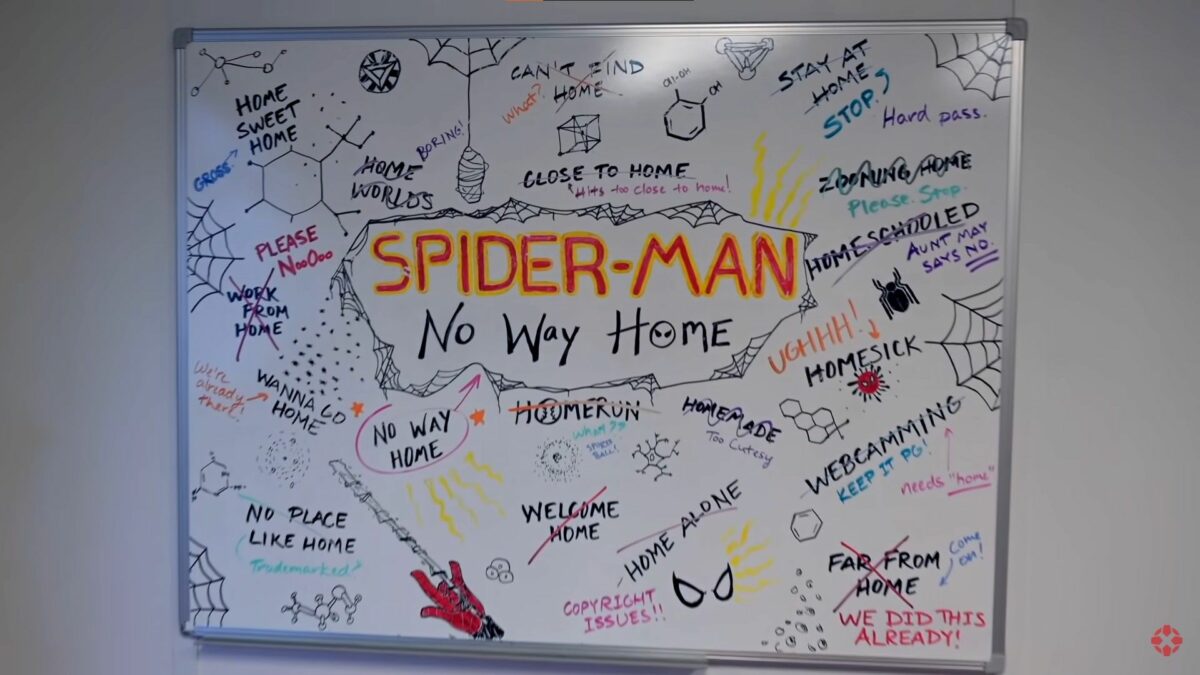 HOME
SWEET
HOME
GROSS
HOME
WORLDS
BORING!
CAN'T FIND
HOME
What?
CH₂-OH
OH
STAY AT
HOME
STOP.
Hard pass.
CLOSE TO HOME
Hits too close to home!
ZOOMING HOME
Please. Stop.
HOMESCHOOLED
AUNT MAY
SAYS NO.
PLEASE
NooOoo
WORK
FROM
HOME
SPIDER-MAN
No Way HOME
UGHHH!
HOMESICK
We're
already
there!
WANNA GO
HOME
NO WAY
HOME
HOMERUN
What??
SPIDER
BALL!
HOMEMADE
Too Cutesy
WEBCAMMING
KEEP IT PG!
needs "home"
NO PLACE
LIKE HOME
Trademarked?
WELCOME
HOME
HOME ALONE
COPYRIGHT
ISSUES!!
FAR FROM
HOME
Come
on!
WE DID THIS
ALREADY!